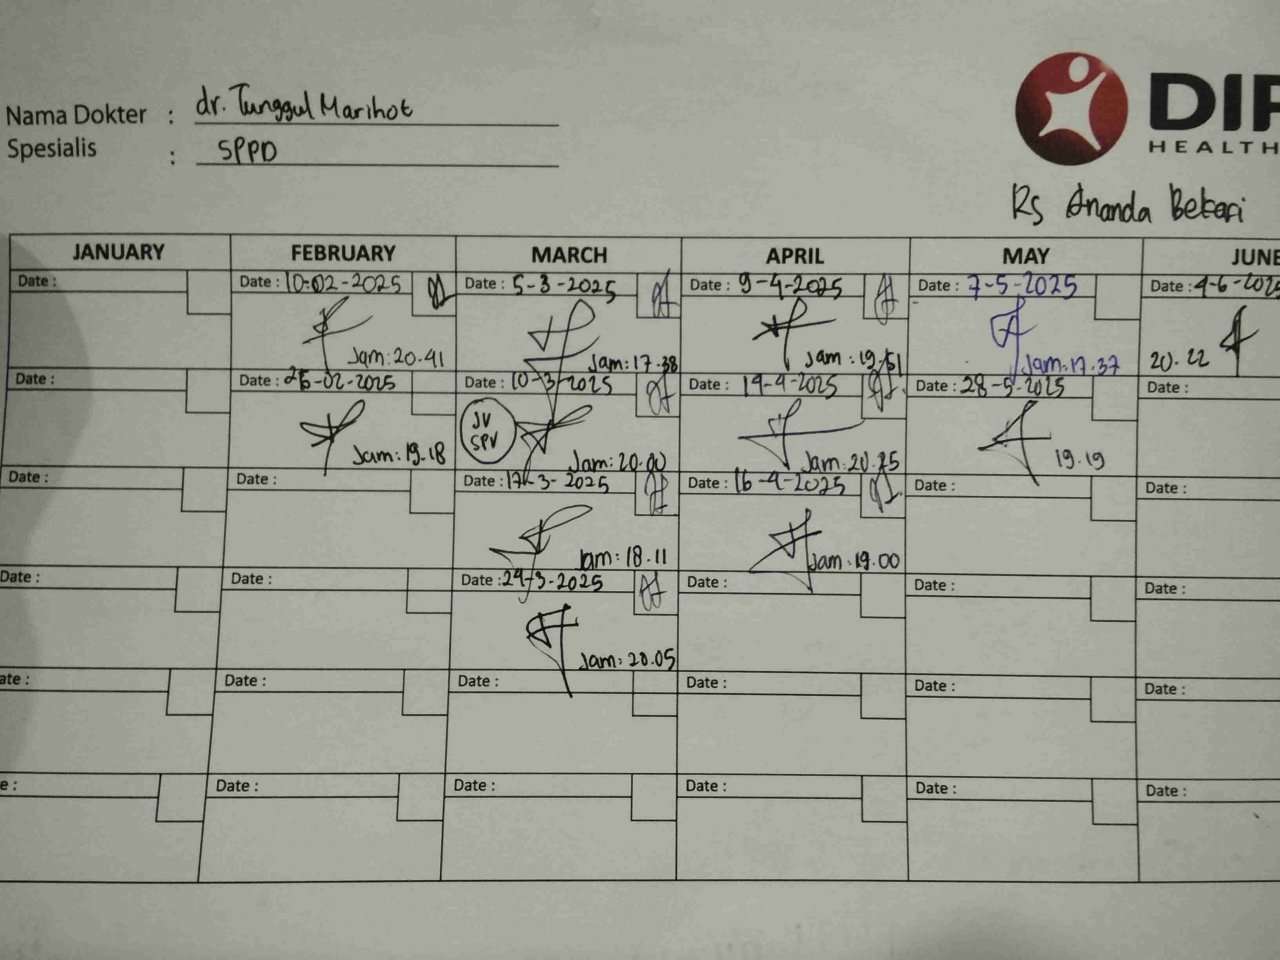 Nama Dokter : dr. Tunggul Marihot
Spesialis : SPPD
DIP
HEALTH
RS Ananda Bekasi
JANUARY FEBRUARY MARCH APRIL MAY JUNE
Date : Date : 10-02-2025 Date : 5-3-2025 Date : 9-4-2025 Date : 7-5-2025 Date : 4-6-2025
Jam: 20.41 Jam: 17.38 Jam : 19.51 Jam: 17.37 20.22
Date : Date : 26-02-2025 Date : 10-3-2025 Date : 14-4-2025 Date : 28-5-2025 Date :
JV
SPV
Jam: 19.18 Jam: 20.00 Jam: 20.25 19.19
Date : Date : Date : 17-3-2025 Date : 16-4-2025 Date : Date :
Jam: 18.11 Jam: 19.00
Date : Date : Date : 24-3-2025 Date : Date : Date :
Jam: 20.05
ate : Date : Date : Date : Date : Date :
e : Date : Date : Date : Date : Date :